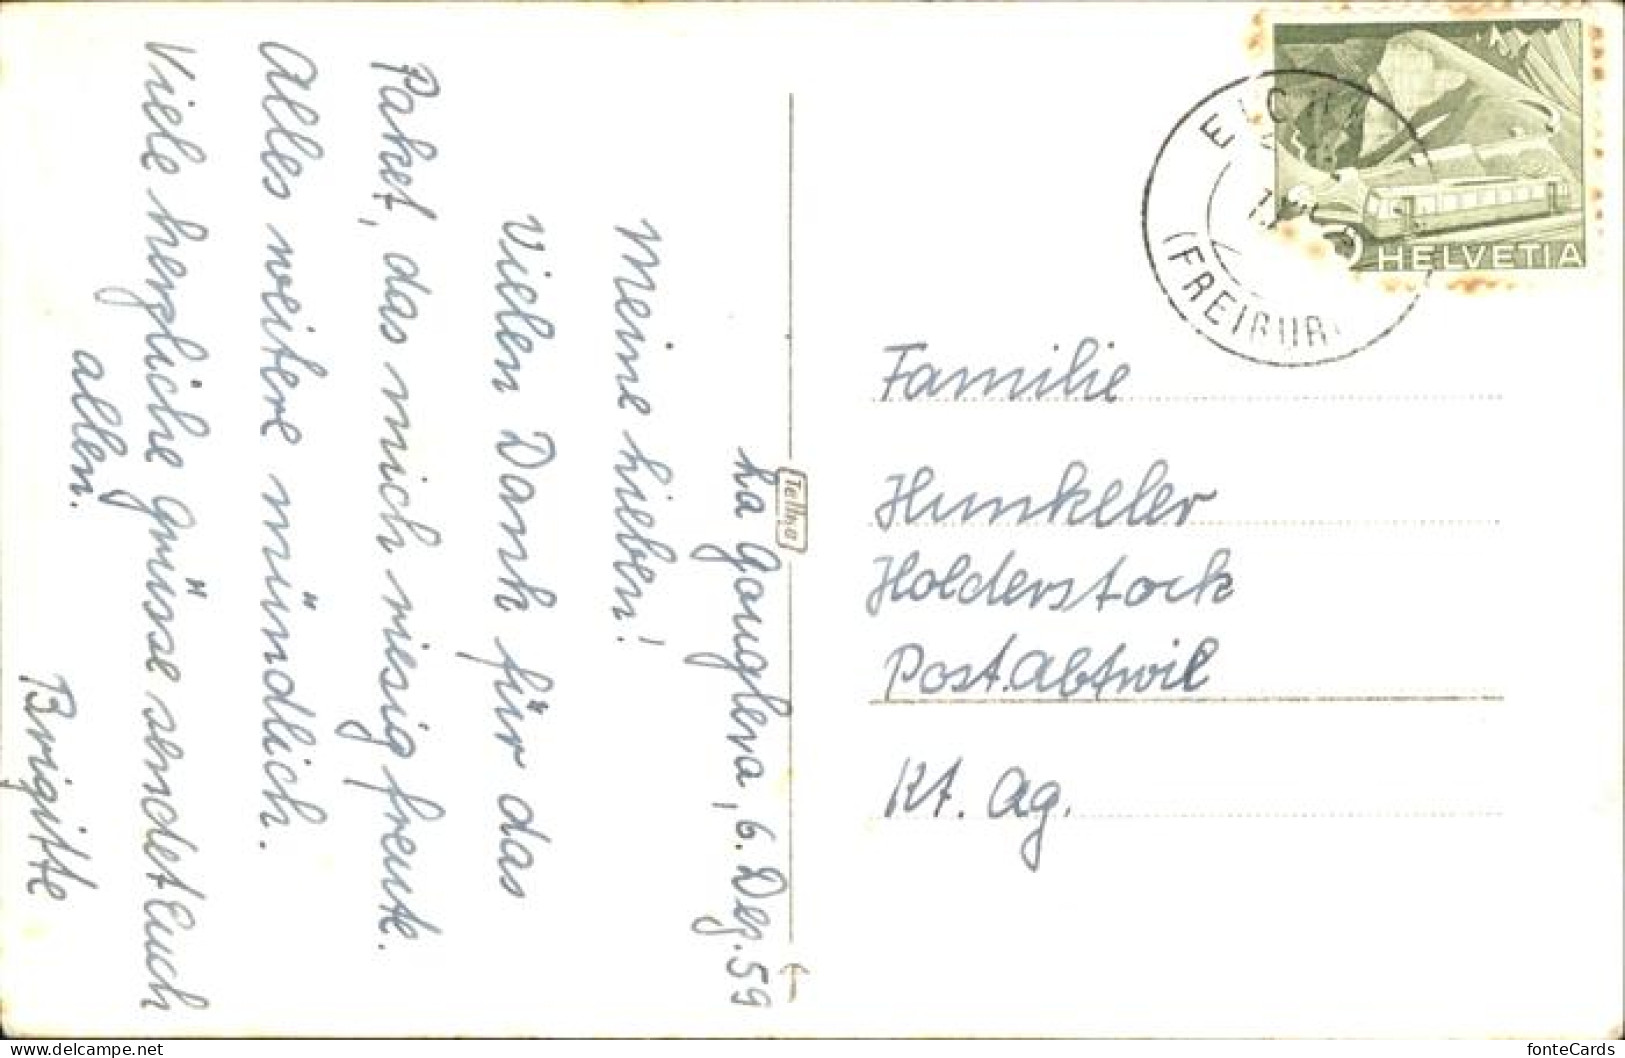 La Gouglera, 6. Dez. 59
Meine Lieben!
Vielen Dank für das
Paket, das mich riesig freute.
Alles weitere mündlich.
Viele herzliche Grüsse sendet Euch
allen.
Brigitte
Tellko
HELVETIA
(FREIBUR
Familie
Hunkeler
Holderstock
Post. Abtwil
Kt. Ag.
delcampe.net
fonteCards